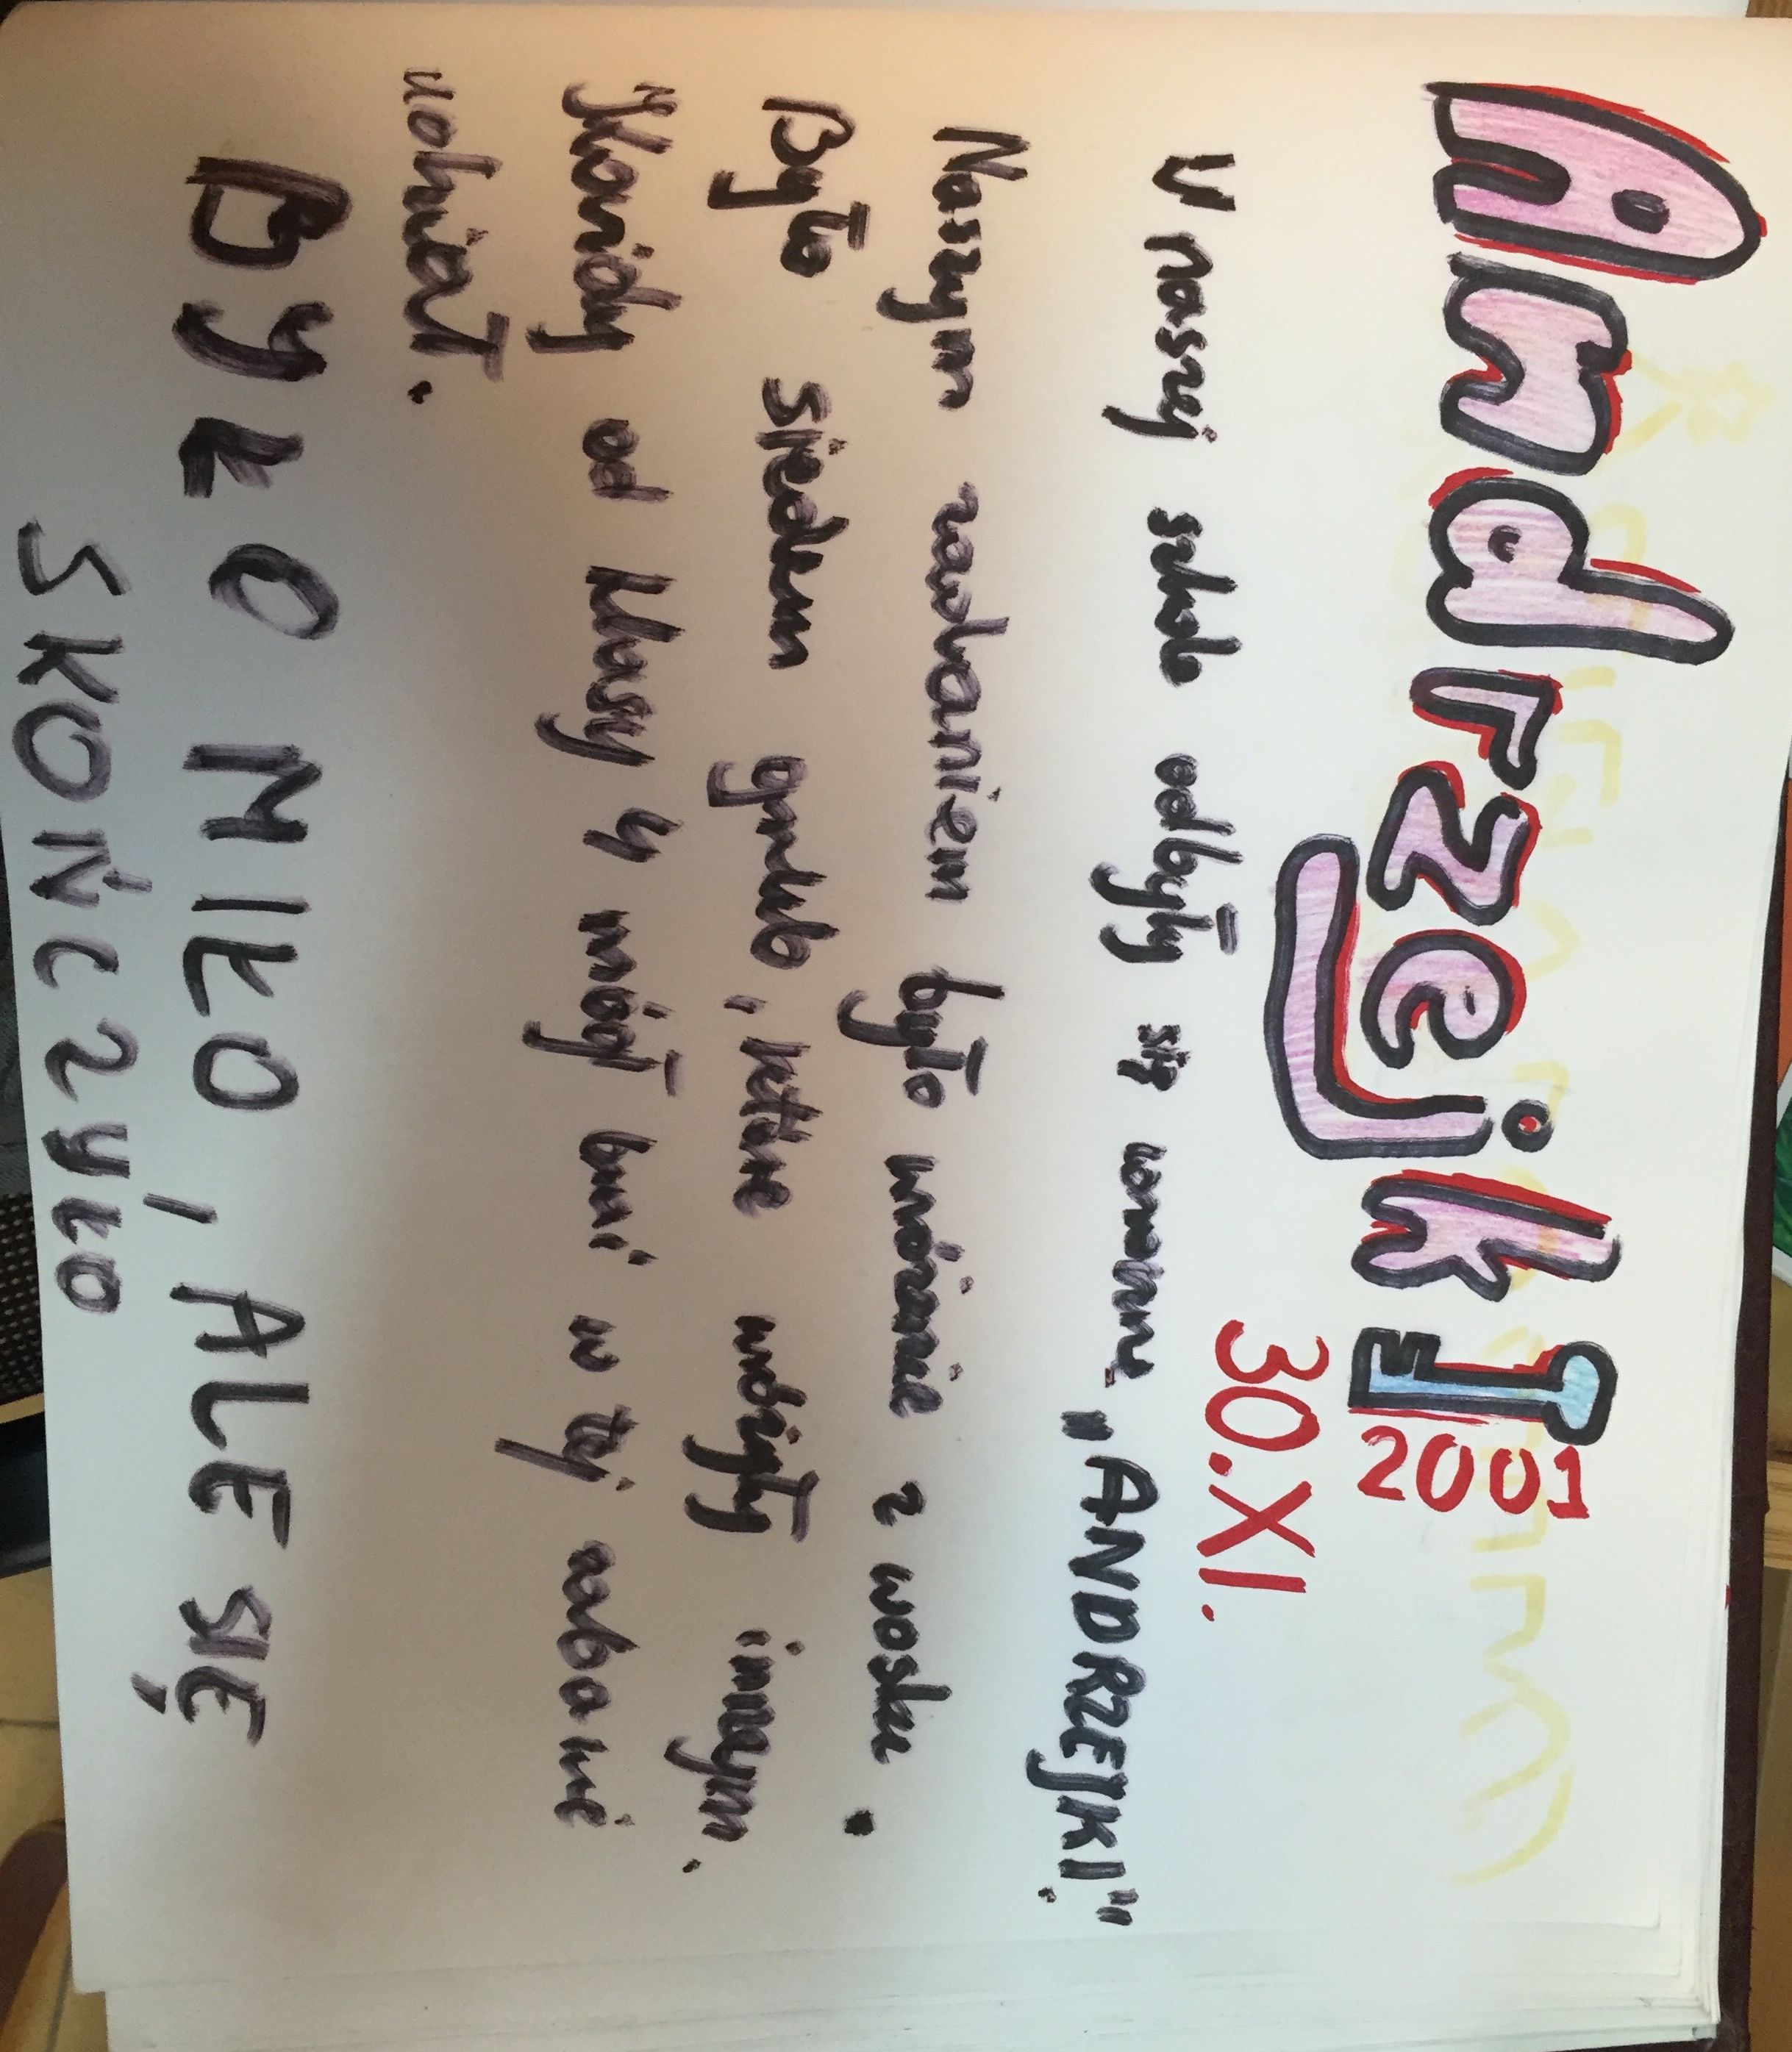 AndrzejkI 2001
30.XI.
U naszej szkole odbyły się worane „ANDRZEJKI".
Naszym zadaniem było wróżenie z wosku.
Było siedem grub, które wróżyły innym.
Każdy od klasy 4 mógł brać w tej zabawie
udział.
BYŁO MIŁO, ALE SIĘ
SKOŃCZYŁO